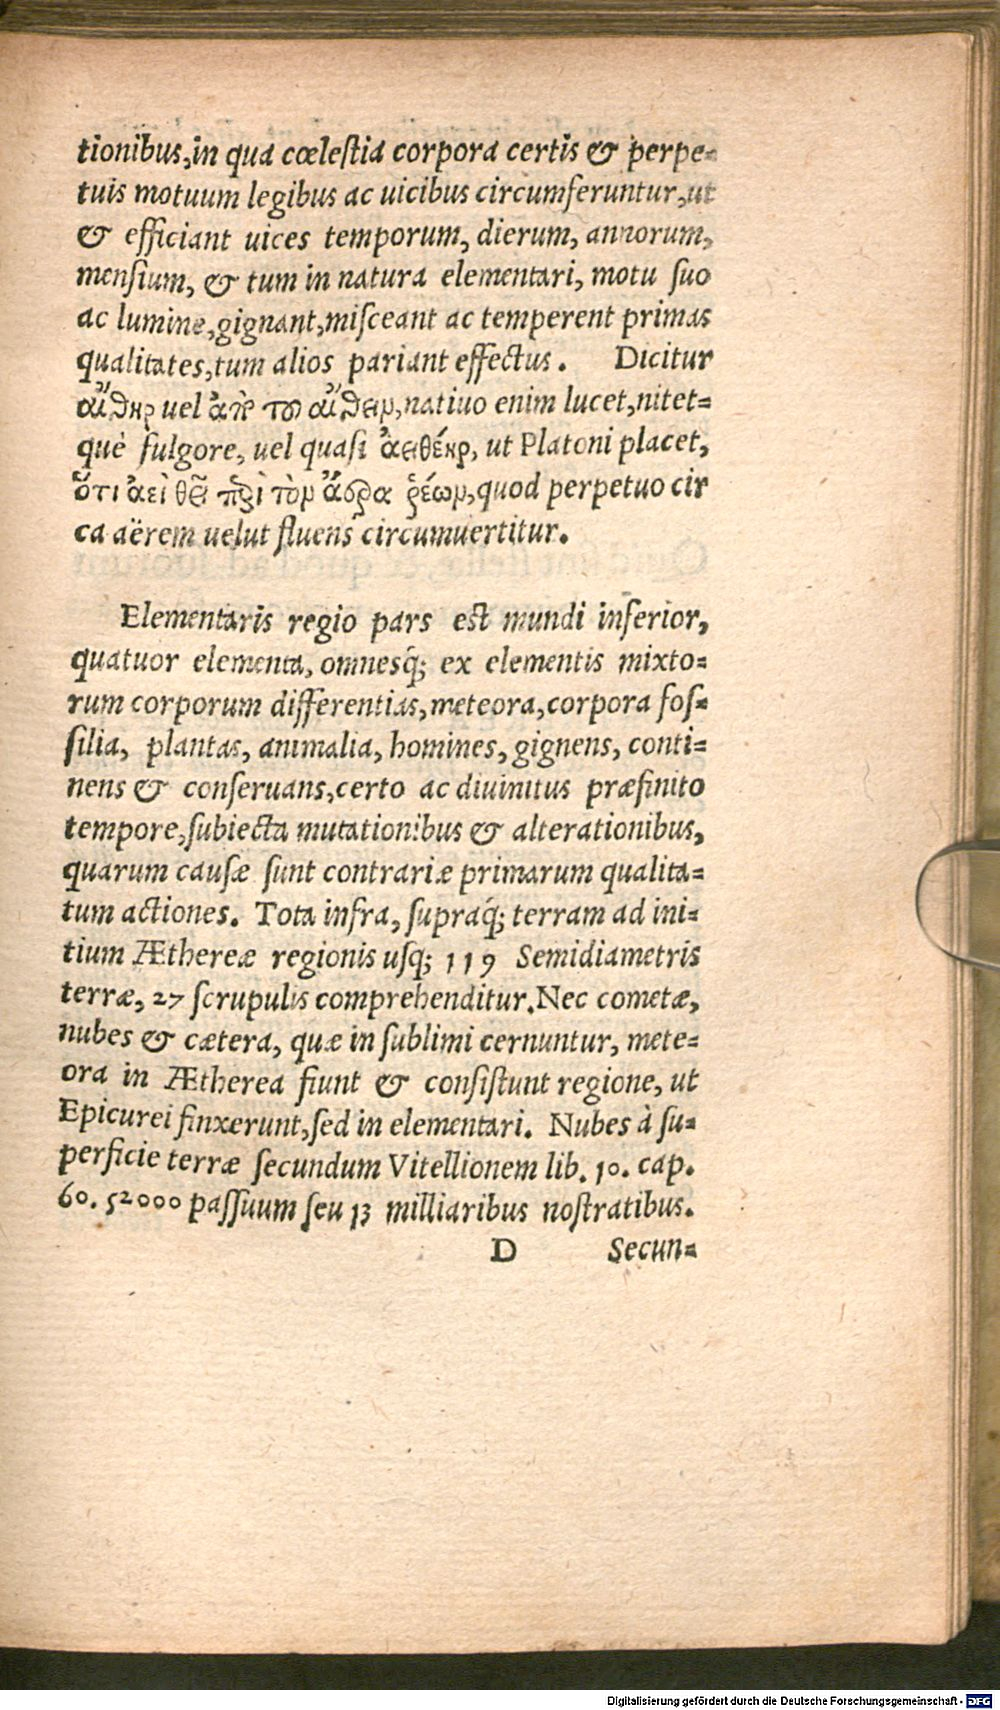 tionibus, in qua cœlestia corpora certis & perpe=
tuis motuum legibus ac uicibus circumferuntur, ut
& efficiant uices temporum, dierum, annorum,
mensium, & tum in natura elementari, motu suo
ac lumine, gignant, misceant ac temperent primas
qualitates, tum alios pariant effectus. Dicitur
αἰθὴρ uel ἀπὸ τοῦ αἴθειν, natiuo enim lucet, nitet=
què fulgore, uel quasi ἀειθέηρ, ut Platoni placet,
ὅτι ἀεὶ θεῖ περὶ τὸν ἀέρα ῥέων, quod perpetuo cir
ca aërem uelut fluens circumuertitur.
Elementaris regio pars est mundi inferior,
quatuor elementa, omnesq́; ex elementis mixto=
rum corporum differentias, meteora, corpora fos=
silia, plantas, animalia, homines, gignens, conti=
nens & conseruans, certo ac diuinitus præfinito
tempore, subiecta mutationibus & alterationibus,
quarum causæ sunt contrariæ primarum qualita=
tum actiones. Tota infra, supraq́; terram ad ini=
tium Æthereæ regionis usq; 119 Semidiametris
terræ, 27 scrupulis comprehenditur. Nec cometæ,
nubes & cætera, quæ in sublimi cernuntur, mete=
ora in Ætherea fiunt & consistunt regione, ut
Epicurei finxerunt, sed in elementari. Nubes à su=
perficie terræ secundum Vitellionem lib. 10. cap.
60. 52000 passuum seu 13 milliaribus nostratibus.
D Secun=
Digitalisierung gefördert durch die Deutsche Forschungsgemeinschaft - DFG